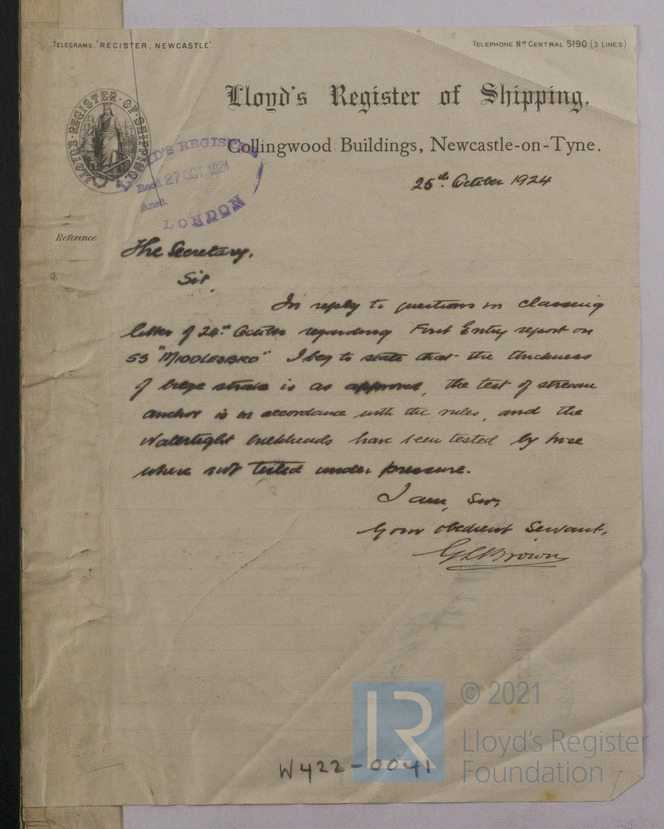 TELEGRAMS, "REGISTER, NEWCASTLE".
TELEPHONE Nº CENTRAL 5190 (3 LINES)
Lloyd's Register of Shipping,
Collingwood Buildings, Newcastle-on-Tyne.
LLOYD'S REGISTER OF SHIPPING
LLOYD'S REGISTER
Recd 27 OCT. 1924
LONDON
25th October 1924
Reference
The Secretary,
Sir,
In reply to questions in classing
letter of 24th October regarding First Entry report on
SS "MIDDLESBRO" I beg to state that the thickness
of bilge strake is as approved, the test of stream
anchor is in accordance with the rules, and the
Watertight bulkheads have been tested by hose
where not tested under pressure.
I am, Sir,
Your obedient Servant,
G L Brown
W422-0041
LR
© 2021
Lloyd's Register
Foundation